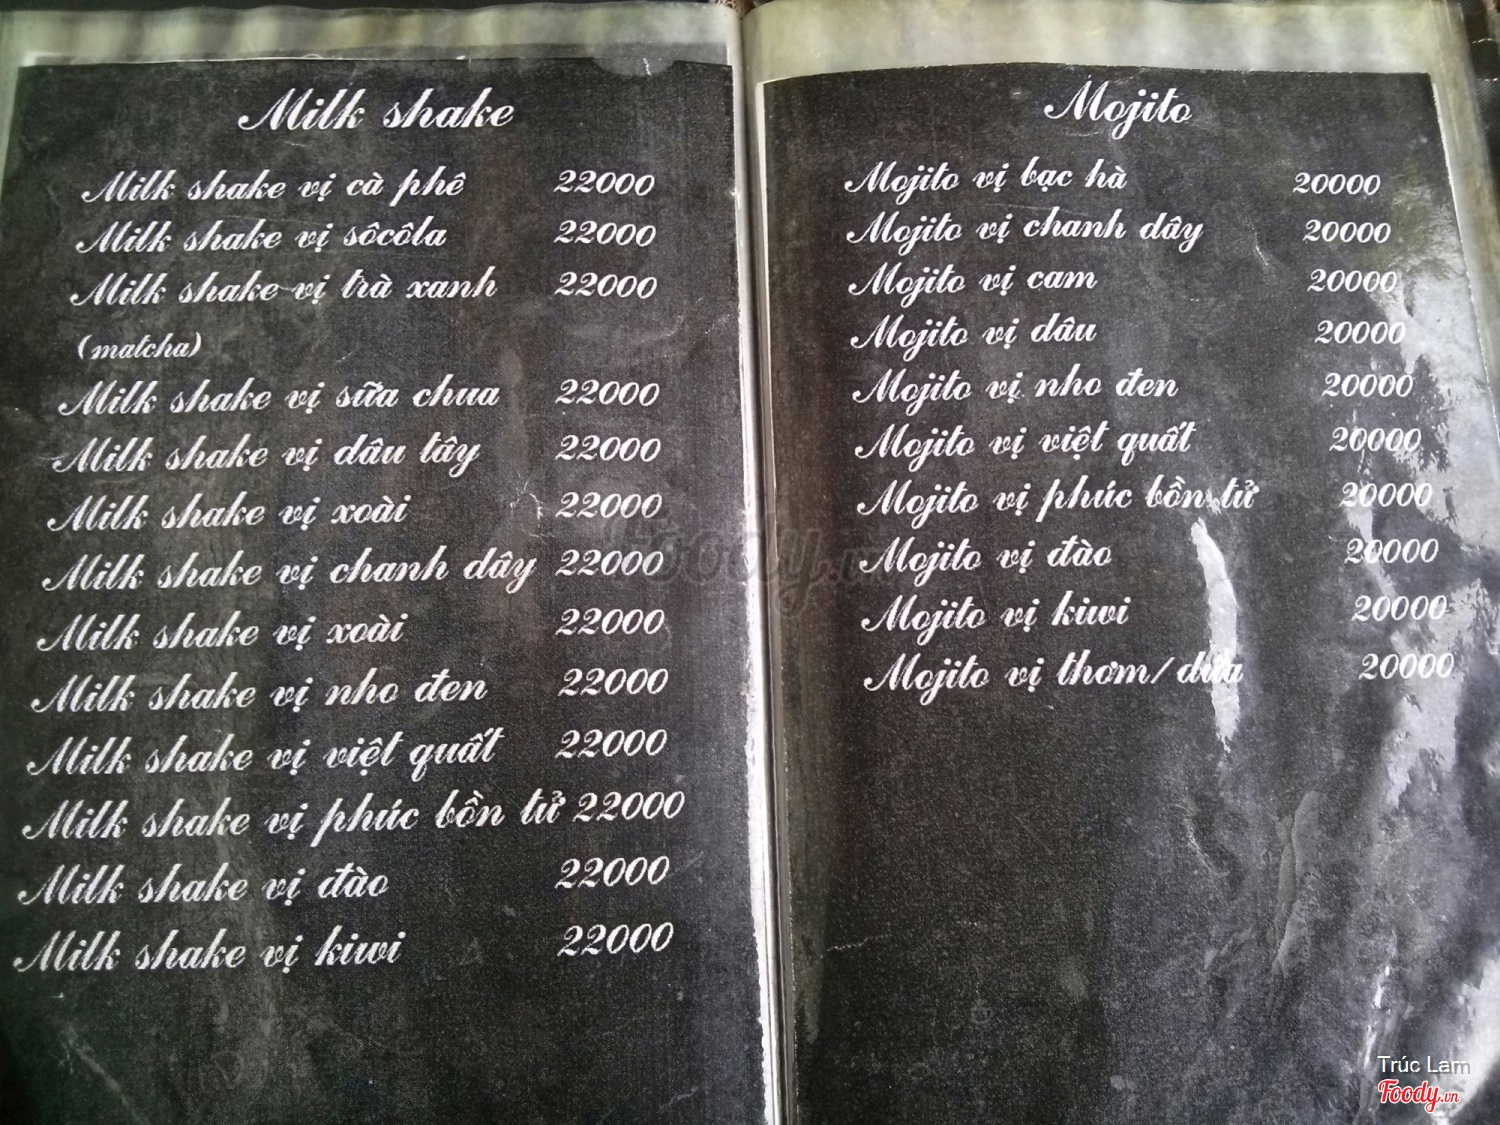 Milk shake
Milk shake vị cà phê 22000
Milk shake vị sôcôla 22000
Milk shake vị trà xanh 22000
(matcha)
Milk shake vị sữa chua 22000
Milk shake vị dâu tây 22000
Milk shake vị xoài 22000
Milk shake vị chanh dây 22000
Milk shake vị xoài 22000
Milk shake vị nho đen 22000
Milk shake vị việt quất 22000
Milk shake vị phúc bồn tử 22000
Milk shake vị đào 22000
Milk shake vị kiwi 22000
Mojito
Mojito vị bạc hà 20000
Mojito vị chanh dây 20000
Mojito vị cam 20000
Mojito vị dâu 20000
Mojito vị nho đen 20000
Mojito vị việt quất 20000
Mojito vị phúc bồn tử 20000
Mojito vị đào 20000
Mojito vị kiwi 20000
Mojito vị thơm/dứa 20000
Foody.vn
Trúc Lam
Foody.vn